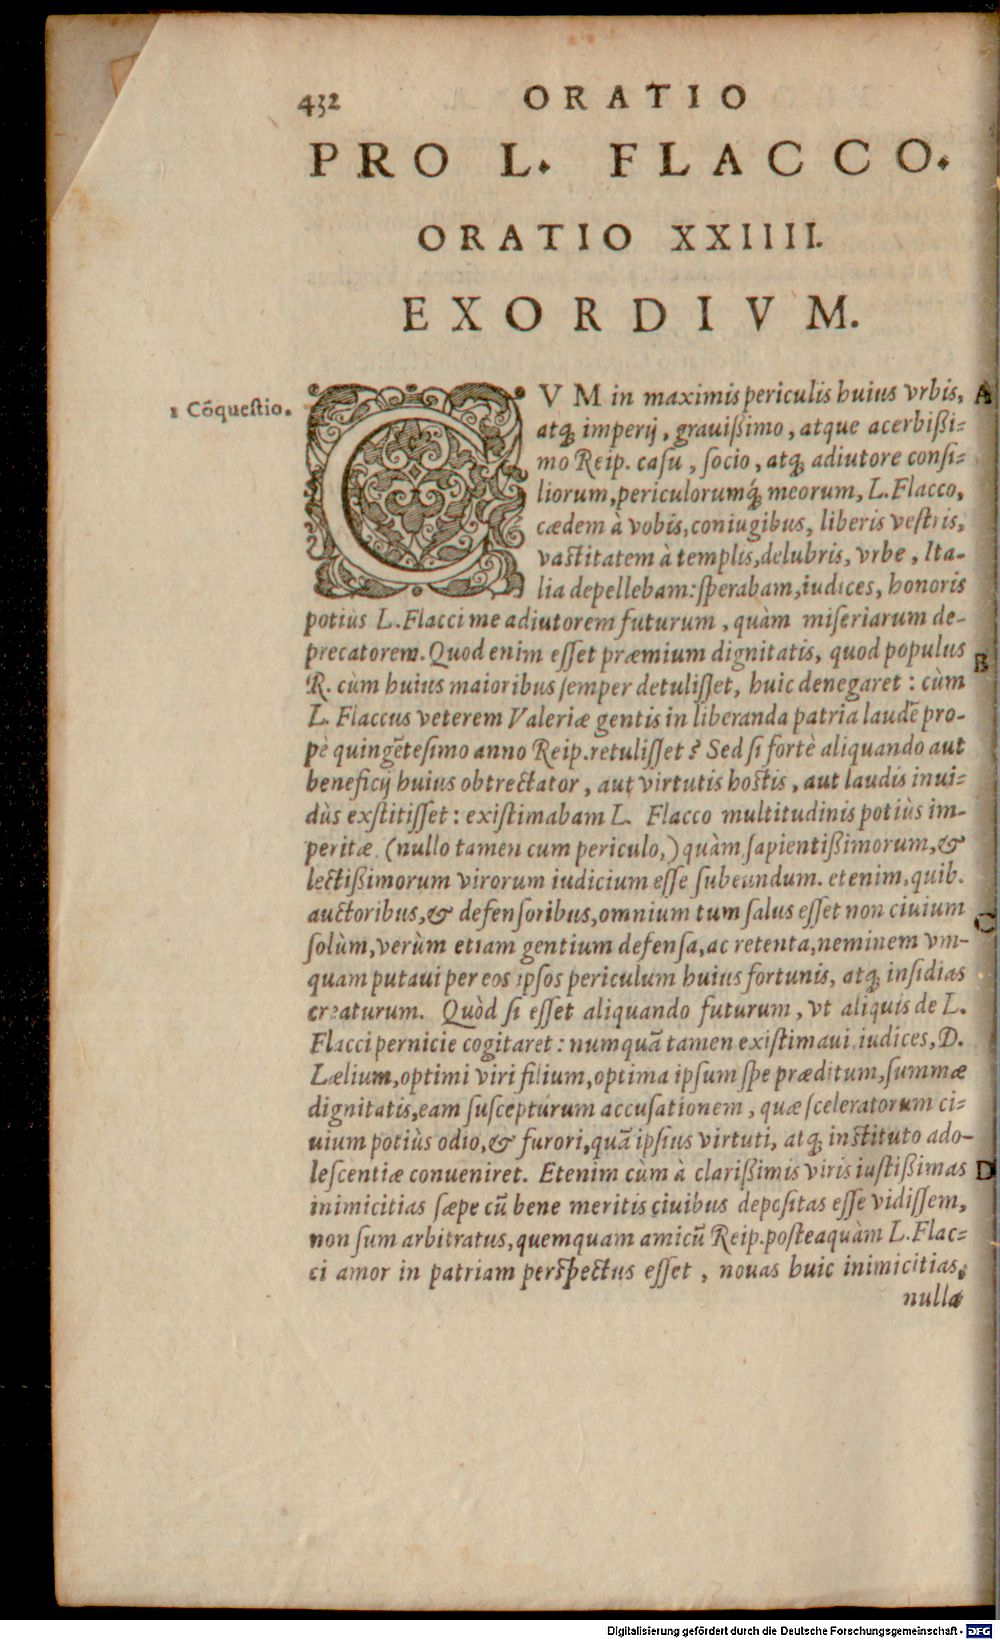 432 ORATIO
PRO L. FLACCO.
ORATIO XXIIII.
EXORDIVM.
1 Cõquestio.
CVM in maximis periculis huius vrbis, A
atq; imperij, grauißimo, atque acerbißi=
mo Reip. casu, socio, atq; adiutore consi=
liorum, periculorumq́; meorum, L. Flacco,
cædem à vobis, coniugibus, liberis vestris,
vastitatem à templis, delubris, vrbe, Ita-
lia depellebam: sperabam, iudices, honoris
potiùs L. Flacci me adiutorem futurum, quàm miseriarum de-
precatorem. Quod enim esset præmium dignitatis, quod populus B
R. cùm huius maioribus semper detulisset, huic denegaret: cùm
L. Flaccus veterem Valeriæ gentis in liberanda patria laudẽ pro-
pè quingẽtesimo anno Reip. retulisset? Sed si fortè aliquando aut
beneficij huius obtrectator, aut virtutis hostis, aut laudis inui=
dùs exstitisset: existimabam L. Flacco multitudinis potiùs im-
peritæ, (nullo tamen cum periculo,) quàm sapientißimorum, &
lectißimorum virorum iudicium esse subeundum. etenim, quib.
auctoribus, & defensoribus, omnium tum salus esset non ciuium C
solùm, verùm etiam gentium defensa, ac retenta, neminem vm-
quam putaui per eos ipsos periculum huius fortunis, atq; insidias
creaturum. Quòd si esset aliquando futurum, vt aliquis de L.
Flacci pernicie cogitaret: numquã tamen existimaui, iudices, D.
Lælium, optimi viri filium, optima ipsum spe præditum, summæ
dignitatis, eam suscepturum accusationem, quæ sceleratorum ci=
uium potiùs odio, & furori, quã ipsius virtuti, atq; instituto ado-
lescentiæ conueniret. Etenim cùm à clarißimis viris iustißimas D
inimicitias sæpe cũ bene meritis ciuibus depositas esse vidissem,
non sum arbitratus, quemquam amicũ Reip. posteaquàm L. Flac=
ci amor in patriam perspectus esset, nouas huic inimicitias,
nulla
Digitalisierung gefördert durch die Deutsche Forschungsgemeinschaft - DFG